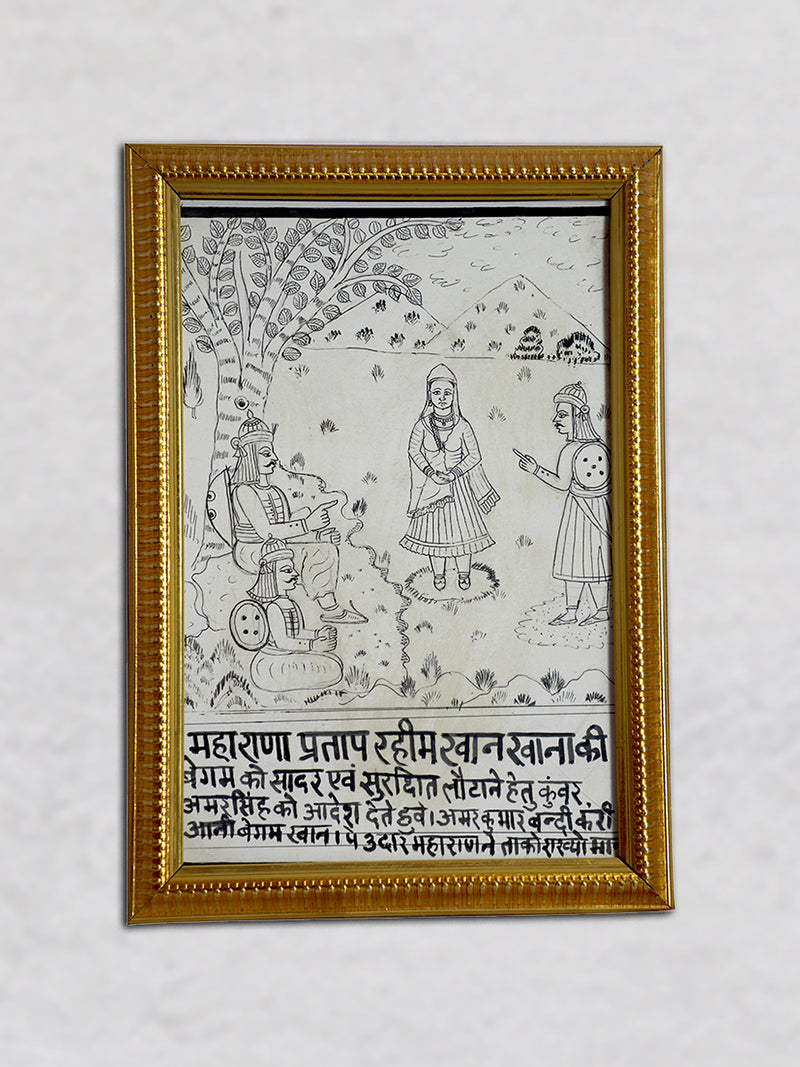 महाराणा प्रताप रहीम खान खाना की
बेगम को सादर एवं सुरक्षित लौटाने हेतु कुंवर
अमरसिंह को आदेश देते हुवे। अमर कुमार बन्दी करी
आनी बेगम खान। प उदार महाराण ने ताको राख्यो मान